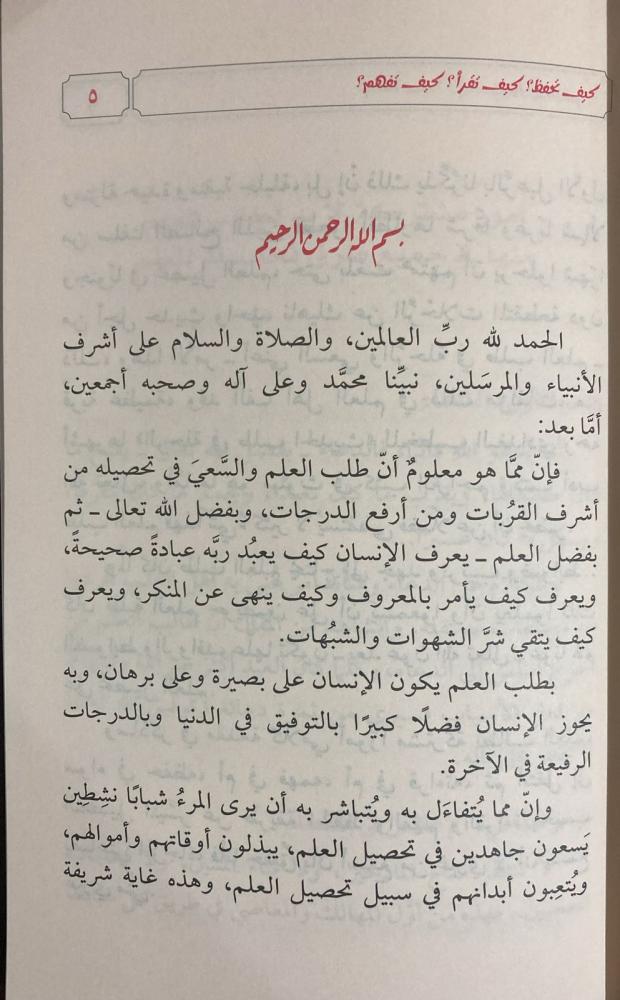 كيف تحفظ؟ كيف تقرأ؟ كيف تفهم؟
٥
بسم الله الرحمن الرحيم
الحمد لله ربِّ العالمين، والصلاة والسلام على أشرف
الأنبياء والمرسَلين، نبيِّنا محمَّد وعلى آله وصحبه أجمعين،
أمَّا بعد:
فإنّ ممَّا هو معلومٌ أنّ طلب العلم والسَّعيَ في تحصيله من
أشرف القرُبات ومن أرفع الدرجات، وبفضل الله تعالى ـ ثم
بفضل العلم ـ يعرف الإنسان كيف يعبُد ربَّه عبادةً صحيحةً،
ويعرف كيف يأمر بالمعروف وكيف ينهى عن المنكر، ويعرف
كيف يتقي شرَّ الشهوات والشبُهات.
بطلب العلم يكون الإنسان على بصيرة وعلى برهان، وبه
يحوز الإنسان فضلًا كبيرًا بالتوفيق في الدنيا وبالدرجات
الرفيعة في الآخرة.
وإنّ مما يُتفاءَل به ويُتباشر به أن يرى المرءُ شبابًا نشِطِين
يَسعون جاهدين في تحصيل العلم، يبذلون أوقاتهم وأموالهم،
ويُتعِبون أبدانهم في سبيل تحصيل العلم، وهذه غاية شريفة